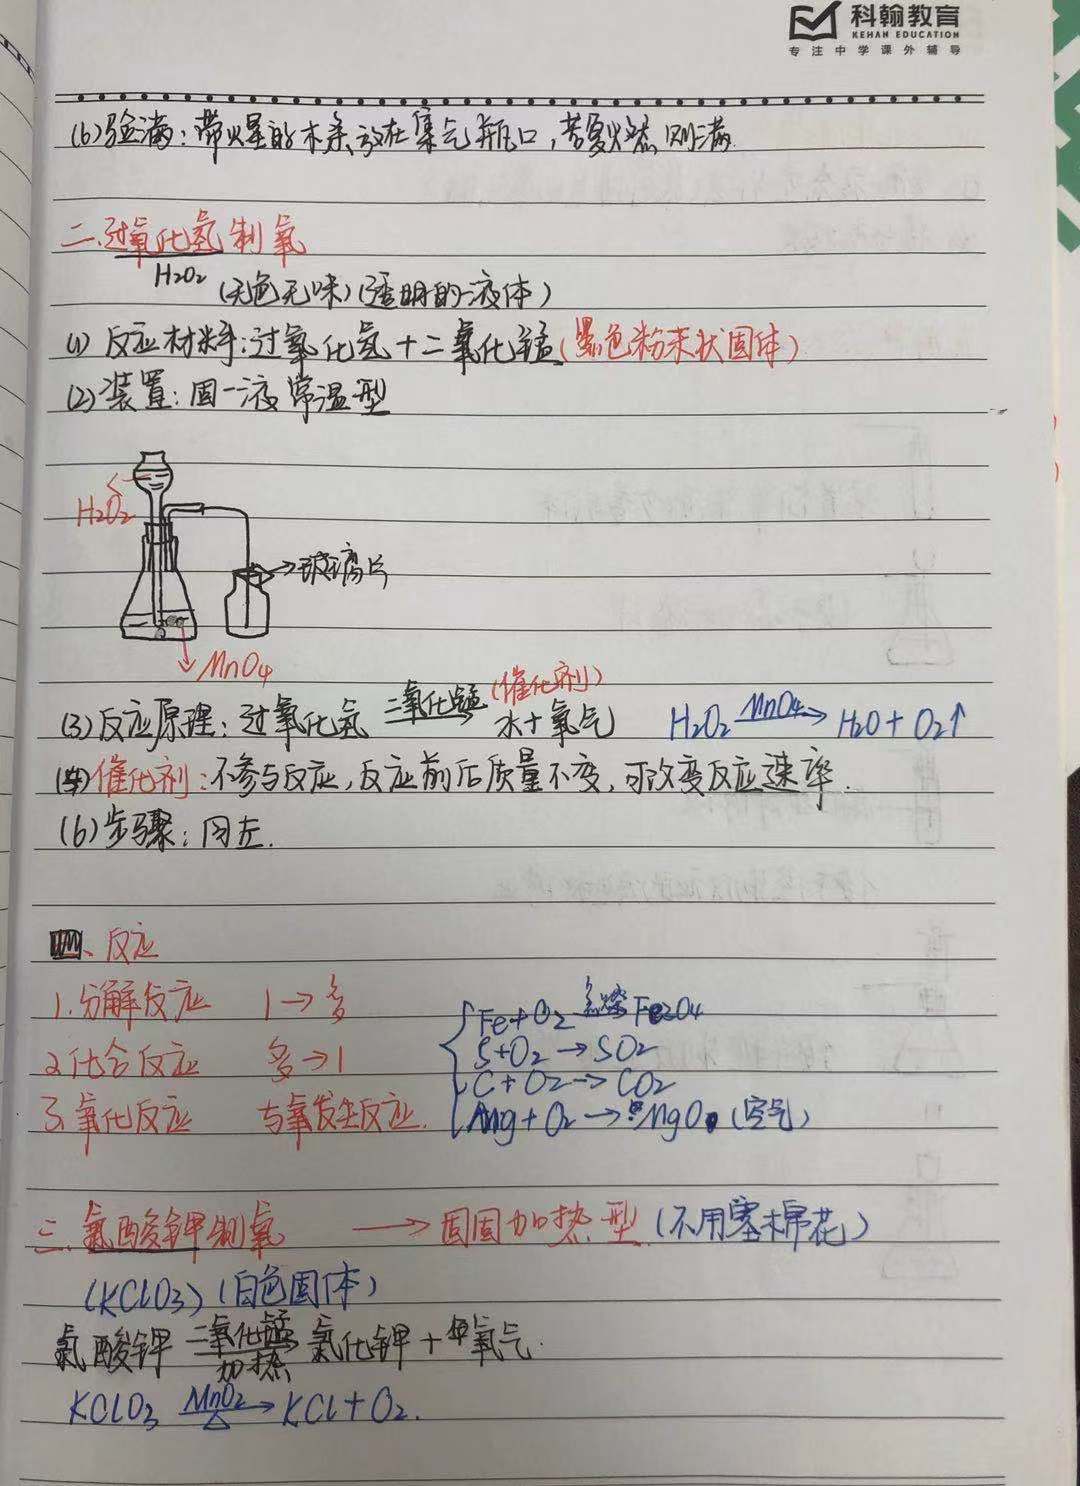 科翰教育
KEHAN EDUCATION
专注中学课外辅导
(6)验满:带火星的木条放在集气瓶口,若复燃则满.
二.过氧化氢制氧
H2O2 (无色无味)(透明的液体)
(1)反应材料:过氧化氢+二氧化锰(黑色粉末状固体)
(2)装置:固-液常温型
H2O2
→玻璃片
MnO4
(3)反应原理:过氧化氢 二氧化锰(催化剂) 水+氧气 H2O2 MnO4→ H2O+O2↑
催化剂:不参与反应,反应前后质量不变,可改变反应速率.
(6)步骤:同左.
四、反应
1.分解反应 1→多
2.化合反应 多→1
3.氧化反应 与氧发生反应.
Fe+O2 点燃 Fe2O4
S+O2→SO2
C+O2→CO2
Mg+O2→MgO (空气)
三.氯酸钾制氧 → 固固加热型(不用塞棉花)
(KClO3)(白色固体)
氯酸钾 二氧化锰 加热 氯化钾+氧气.
KClO3 MnO2 △→ KCl+O2.